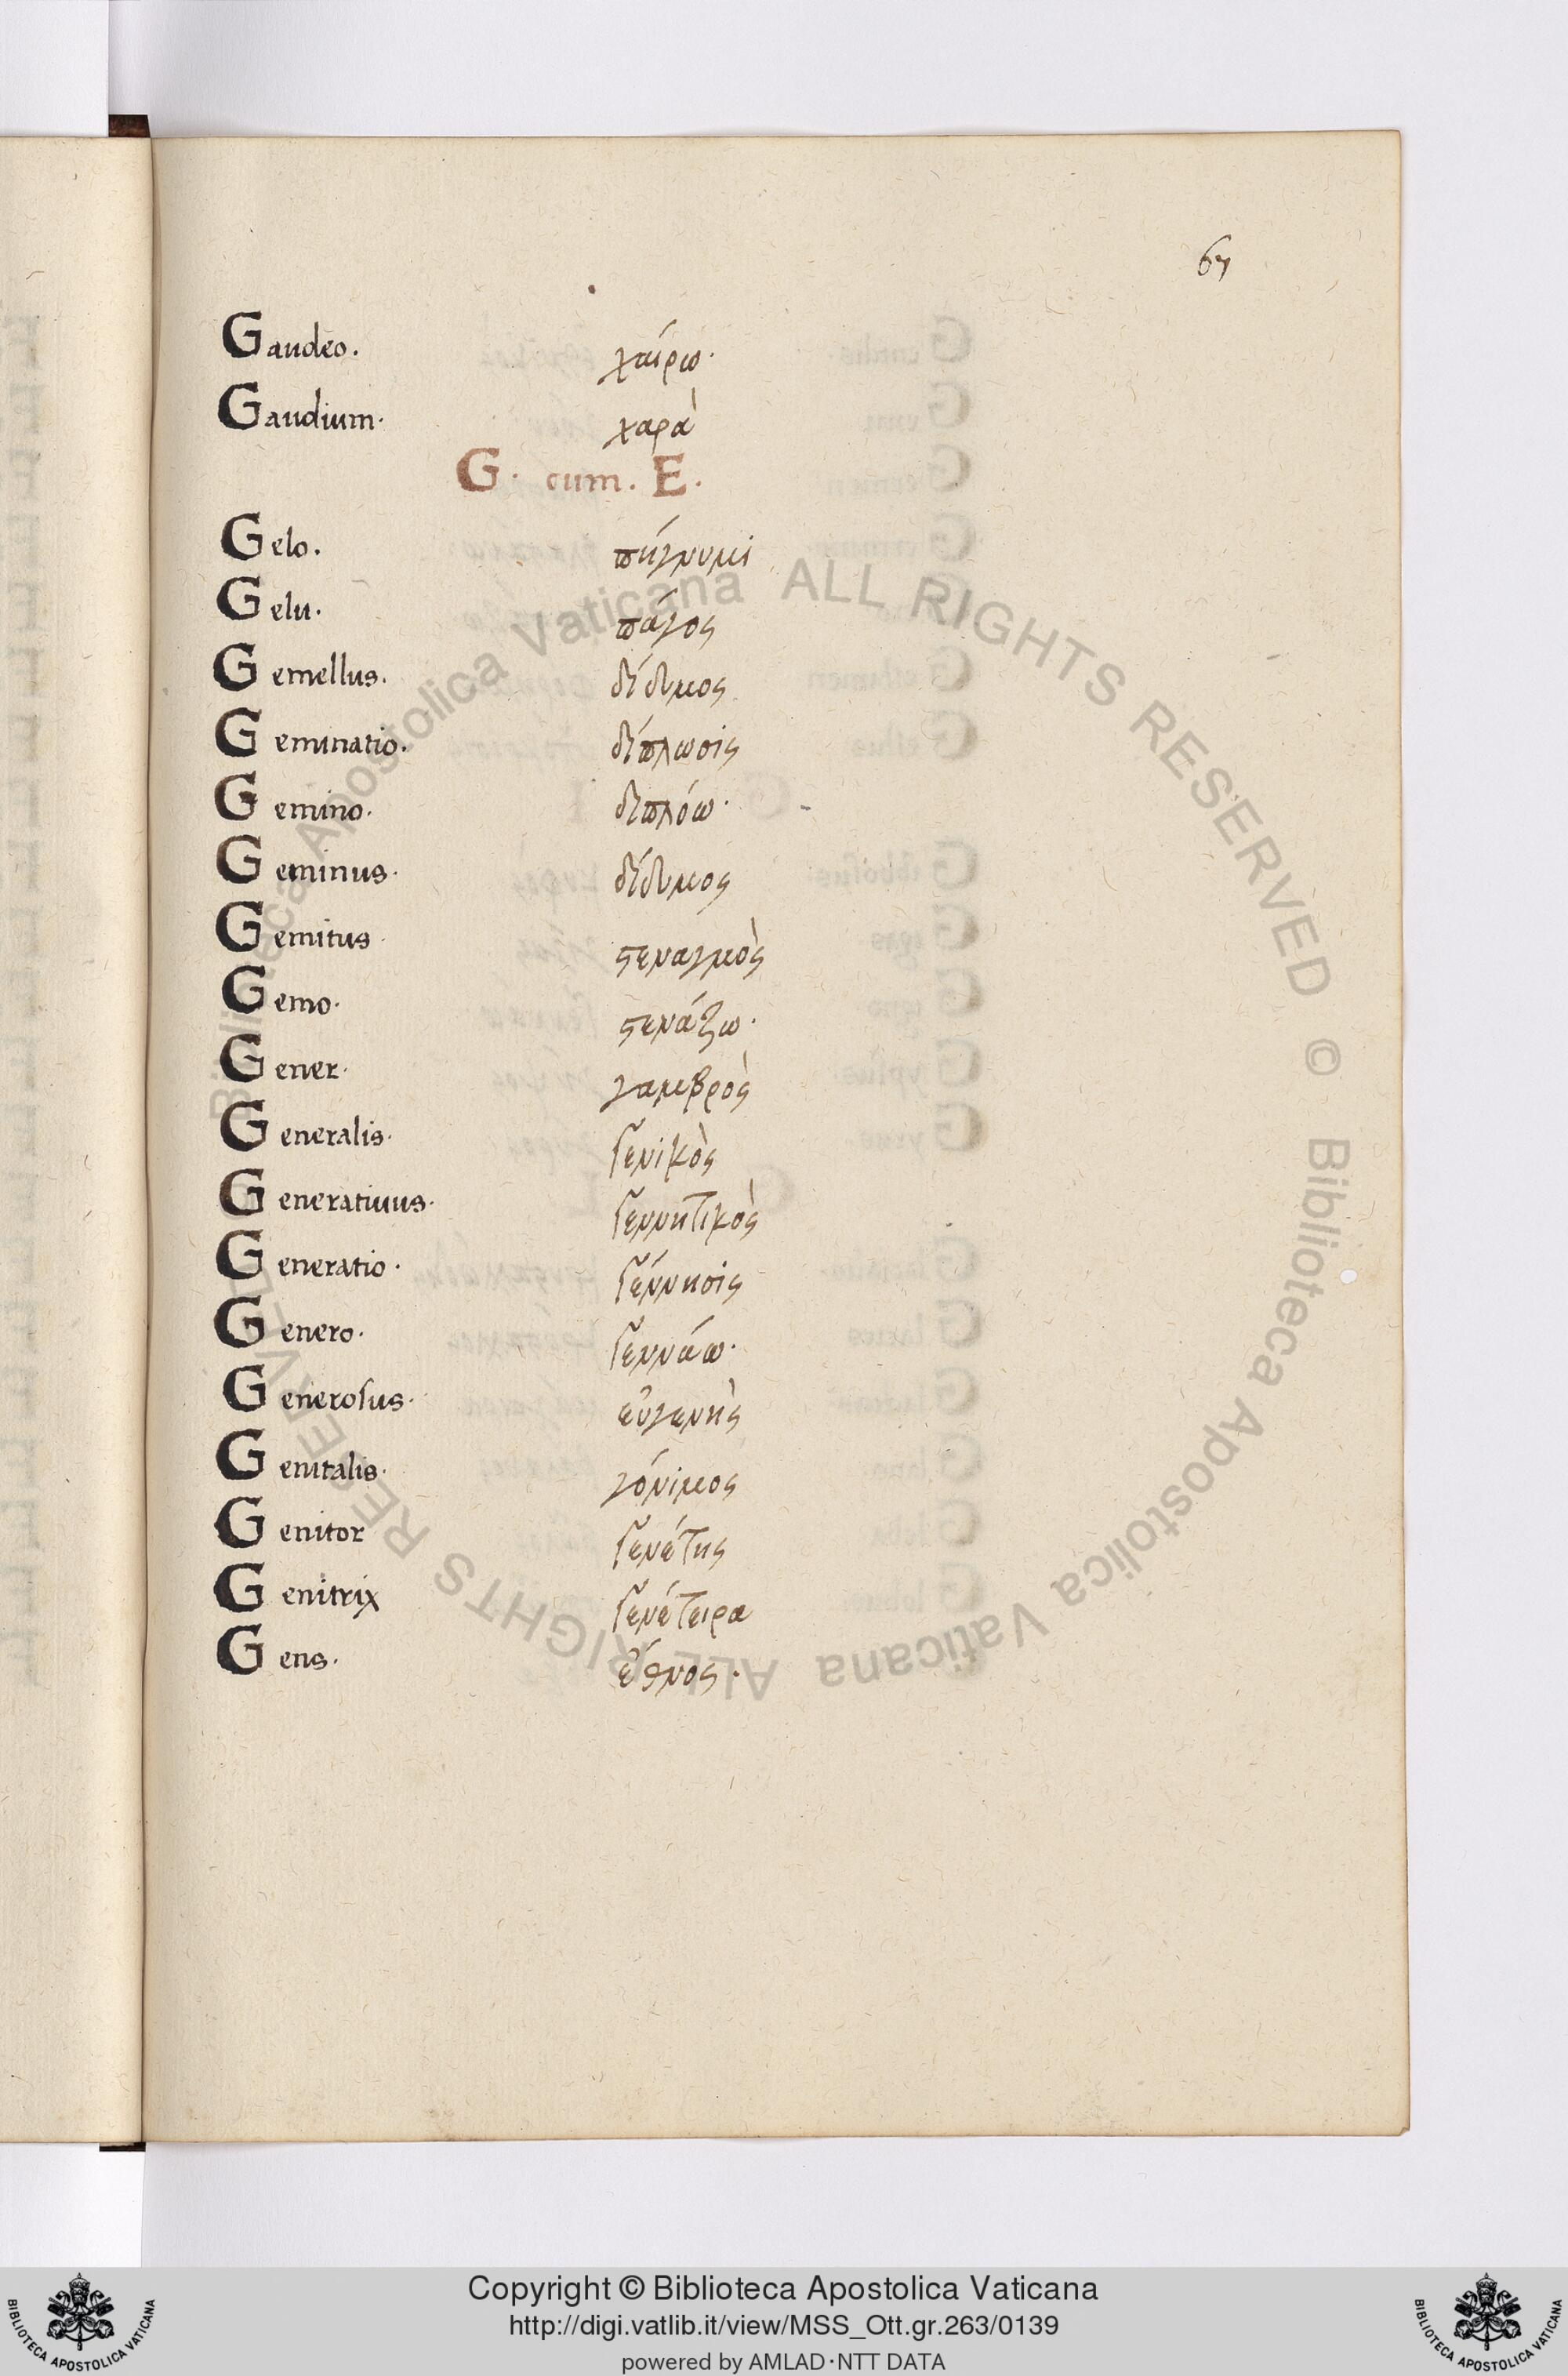 67
Gaudeo. χαίρω·
Gaudium· χαρὰ
G· cum. E.
Gelo. πήγνυμι
Gelu. πάγος
Gemellus. δίδυμος
Geminatio. δίπλωσις
Gemino. διπλόω·
Geminus· δίδυμος
Gemitus· ϛεναγμὸς
Gemo· ϛενάζω·
Gener· γαμβρὸς
Generalis· γενικὸς
Generatiuus· γεννητικὸς
Generatio· γέννησις
Genero· γεννάω·
Generoſus· εὐγενὴς
Genitalis· γόνιμος
Genitor γενέτης
Genitrix γενέτειρα
Gens· ἔθνος·
Biblioteca Apostolica Vaticana ALL RIGHTS RESERVED © Biblioteca Apostolica Vaticana ALL RIGHTS RESERVED
Copyright © Biblioteca Apostolica Vaticana
http://digi.vatlib.it/view/MSS_Ott.gr.263/0139
powered by AMLAD·NTT DATA
BIBLIOTECA APOSTOLICA VATICANA
BIBLIOTECA APOSTOLICA VATICANA